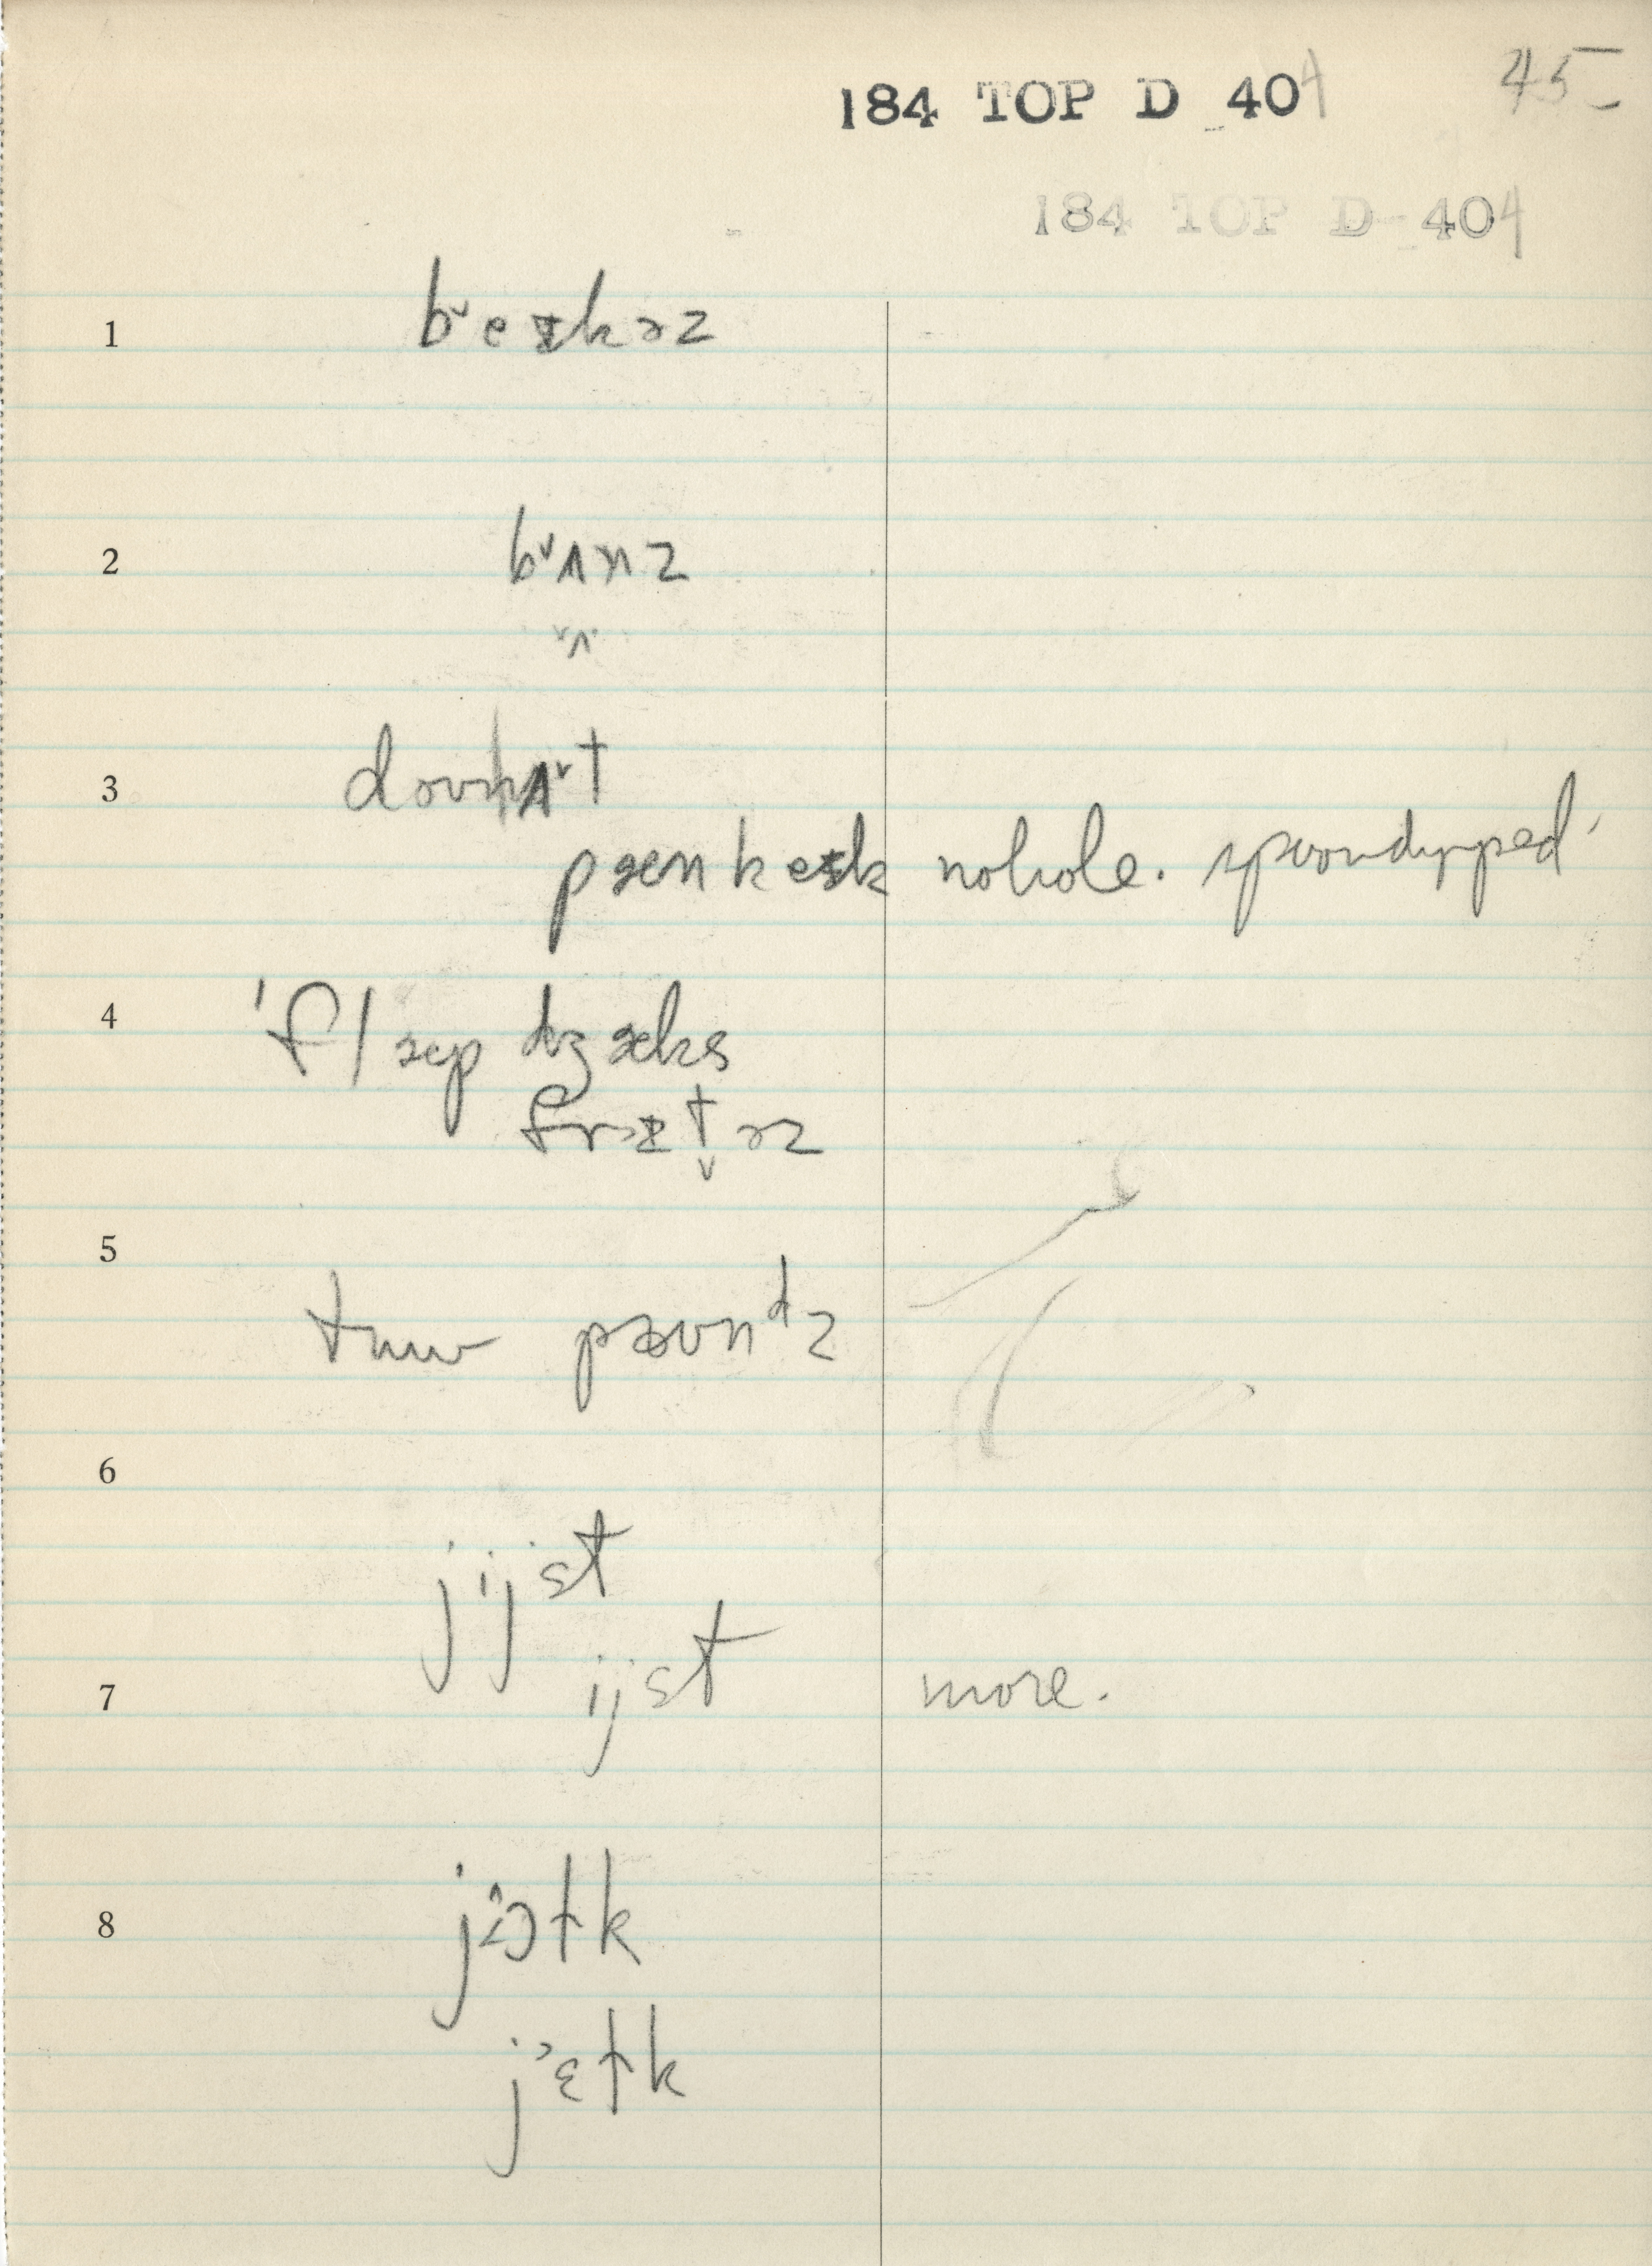 184 TOP D 404
45
184 TOP D 404
1 b˅eɪkəz
2 b˅ʌnz
˅ʌ
3 doʊnʌ˅t
pæn keɪk nohole. spoondypped
4 'flæp dʒæks
frɪtəz
5 tuw pæʊndz
6
jijst
7 ijst more.
8 jɔtk
jɛtk